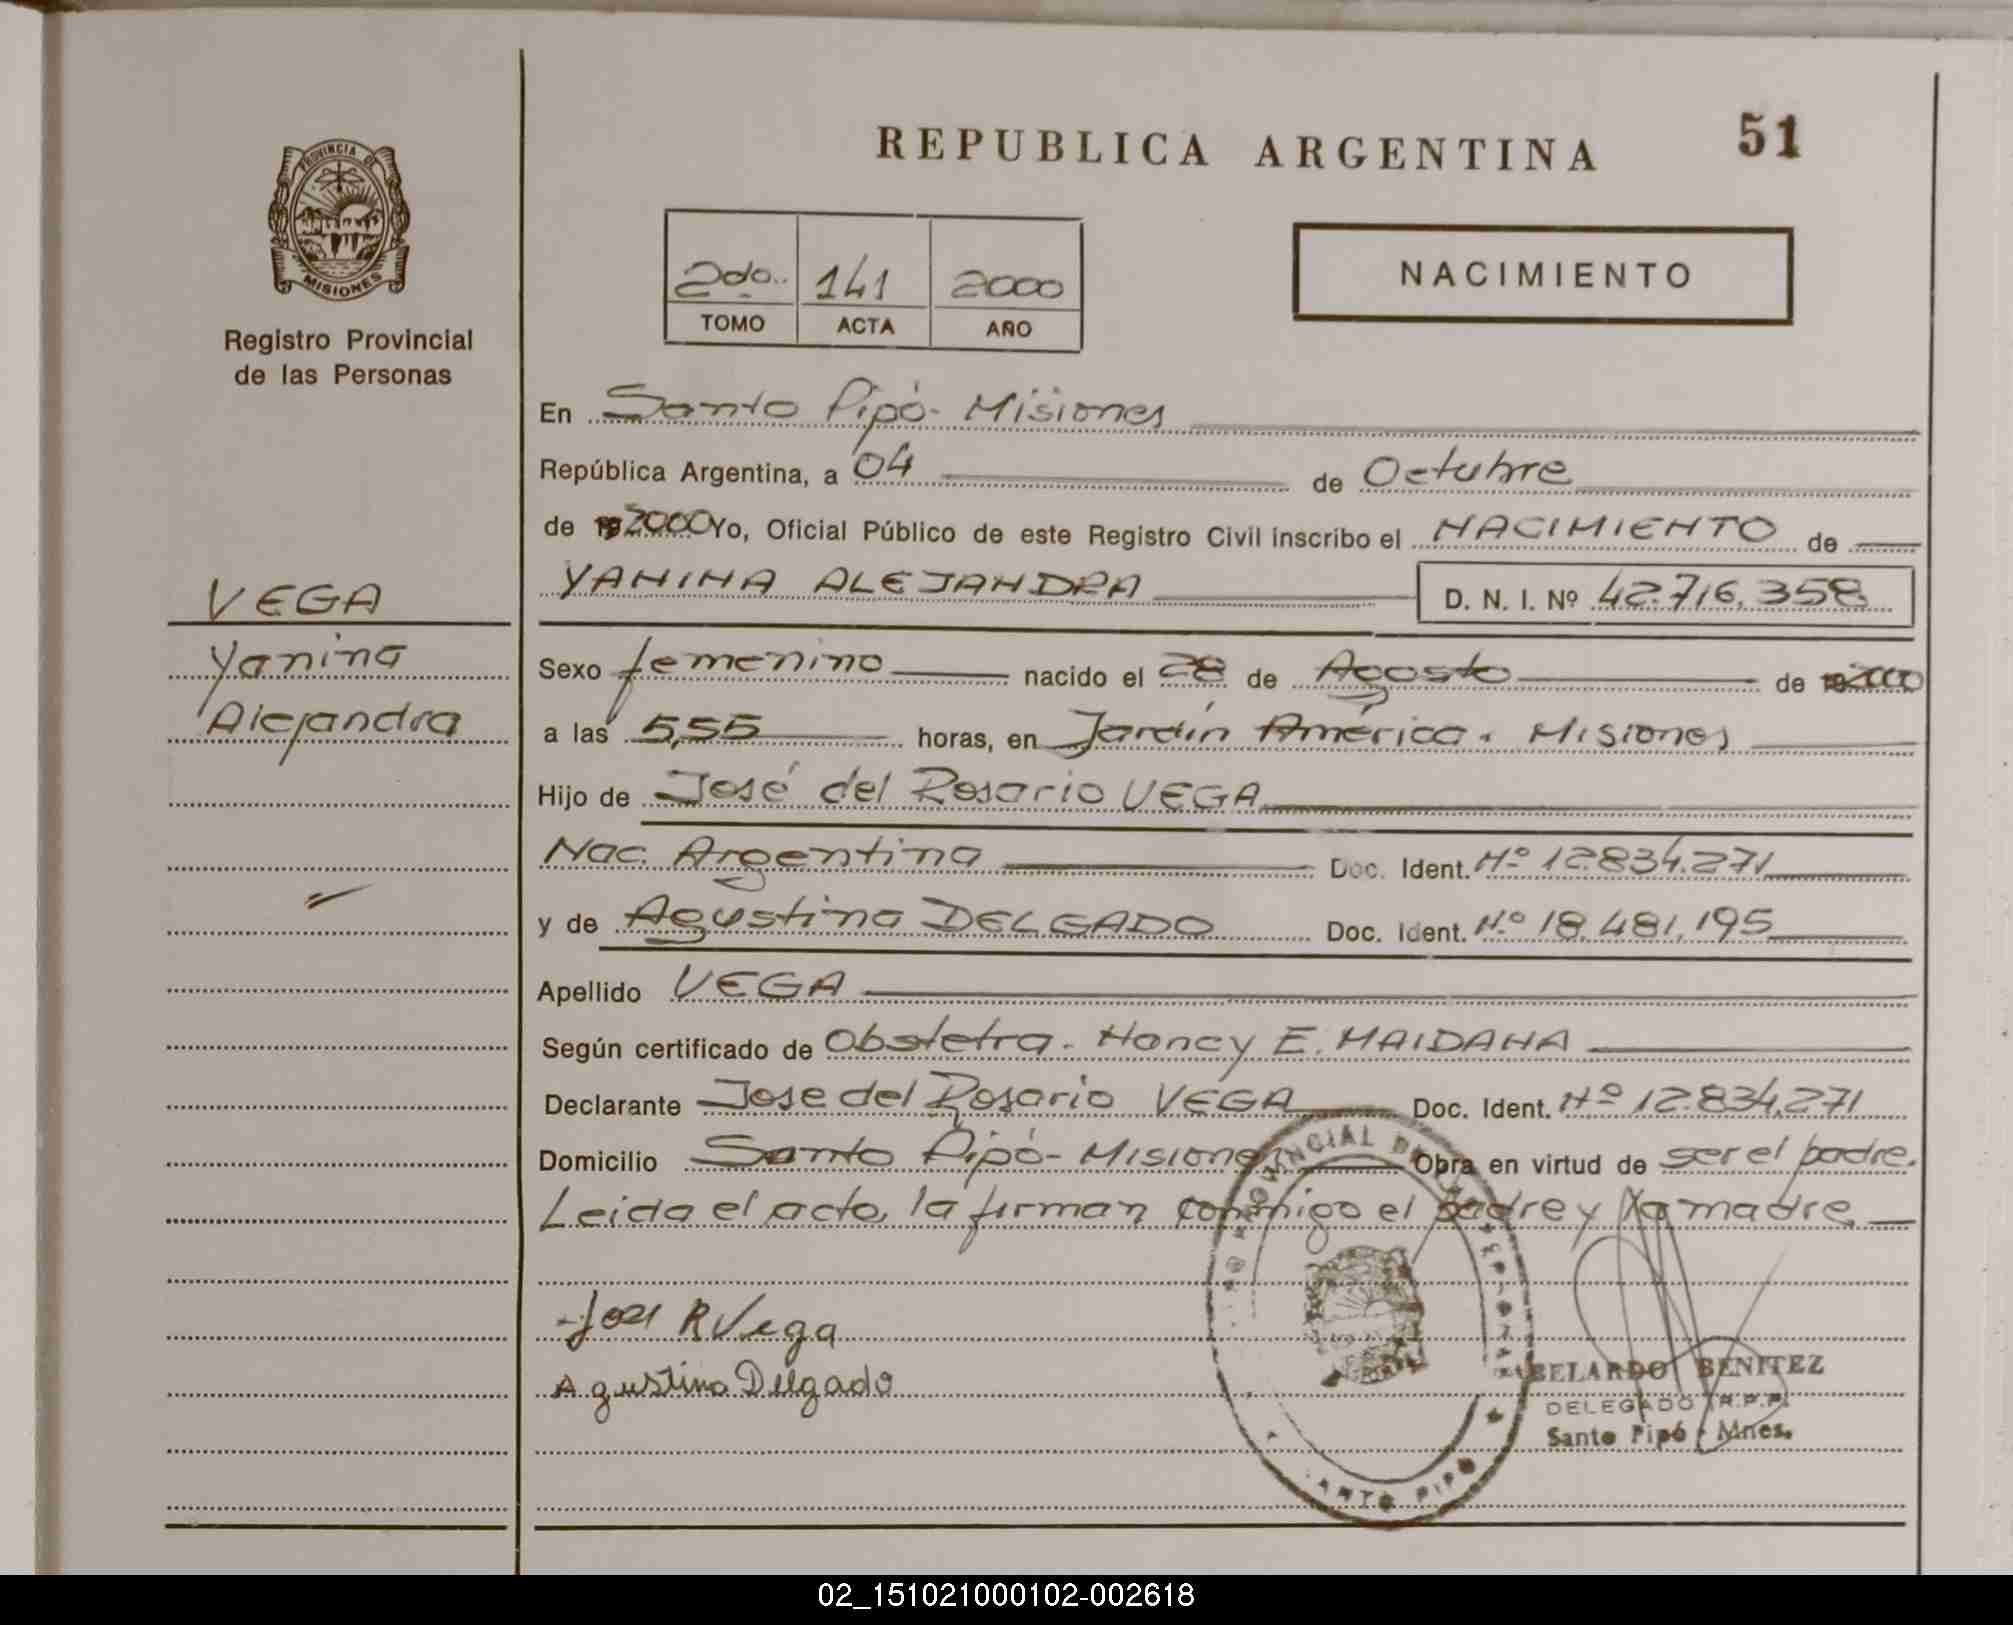 REPUBLICA ARGENTINA
51
PROVINCIA DE
MISIONES
Registro Provincial
de las Personas
2do. 141 2000
TOMO ACTA AÑO
NACIMIENTO
En Santo Pipó - Misiones
República Argentina, a 04 de Octubre
de 2000 Yo, Oficial Público de este Registro Civil inscribo el NACIMIENTO de
YANINA ALEJANDRA D. N. I. Nº 42.716.358
VEGA
Yanina
Alejandra
Sexo femenino nacido el 28 de Agosto de 2000
a las 5,55 horas, en Jardín América. Misiones
Hijo de José del Rosario VEGA
Nac. Argentina Doc. Ident. Nº 12.834.271
y de Agustina DELGADO Doc. Ident. Nº 18.481.195
Apellido VEGA
Según certificado de Obstetra. Nancy E. MAIDANA
Declarante Jose del Rosario VEGA Doc. Ident. Nº 12.834.271
Domicilio Santo Pipó - Misiones Obra en virtud de ser el padre.
Leida el acta, la firman conmigo el padre y la madre
Jose R Vega
Agustina Delgado
ABELARDO BENITEZ
DELEGADO R.P.P.
Santo Pipó - Mnes.
02_151021000102-002618